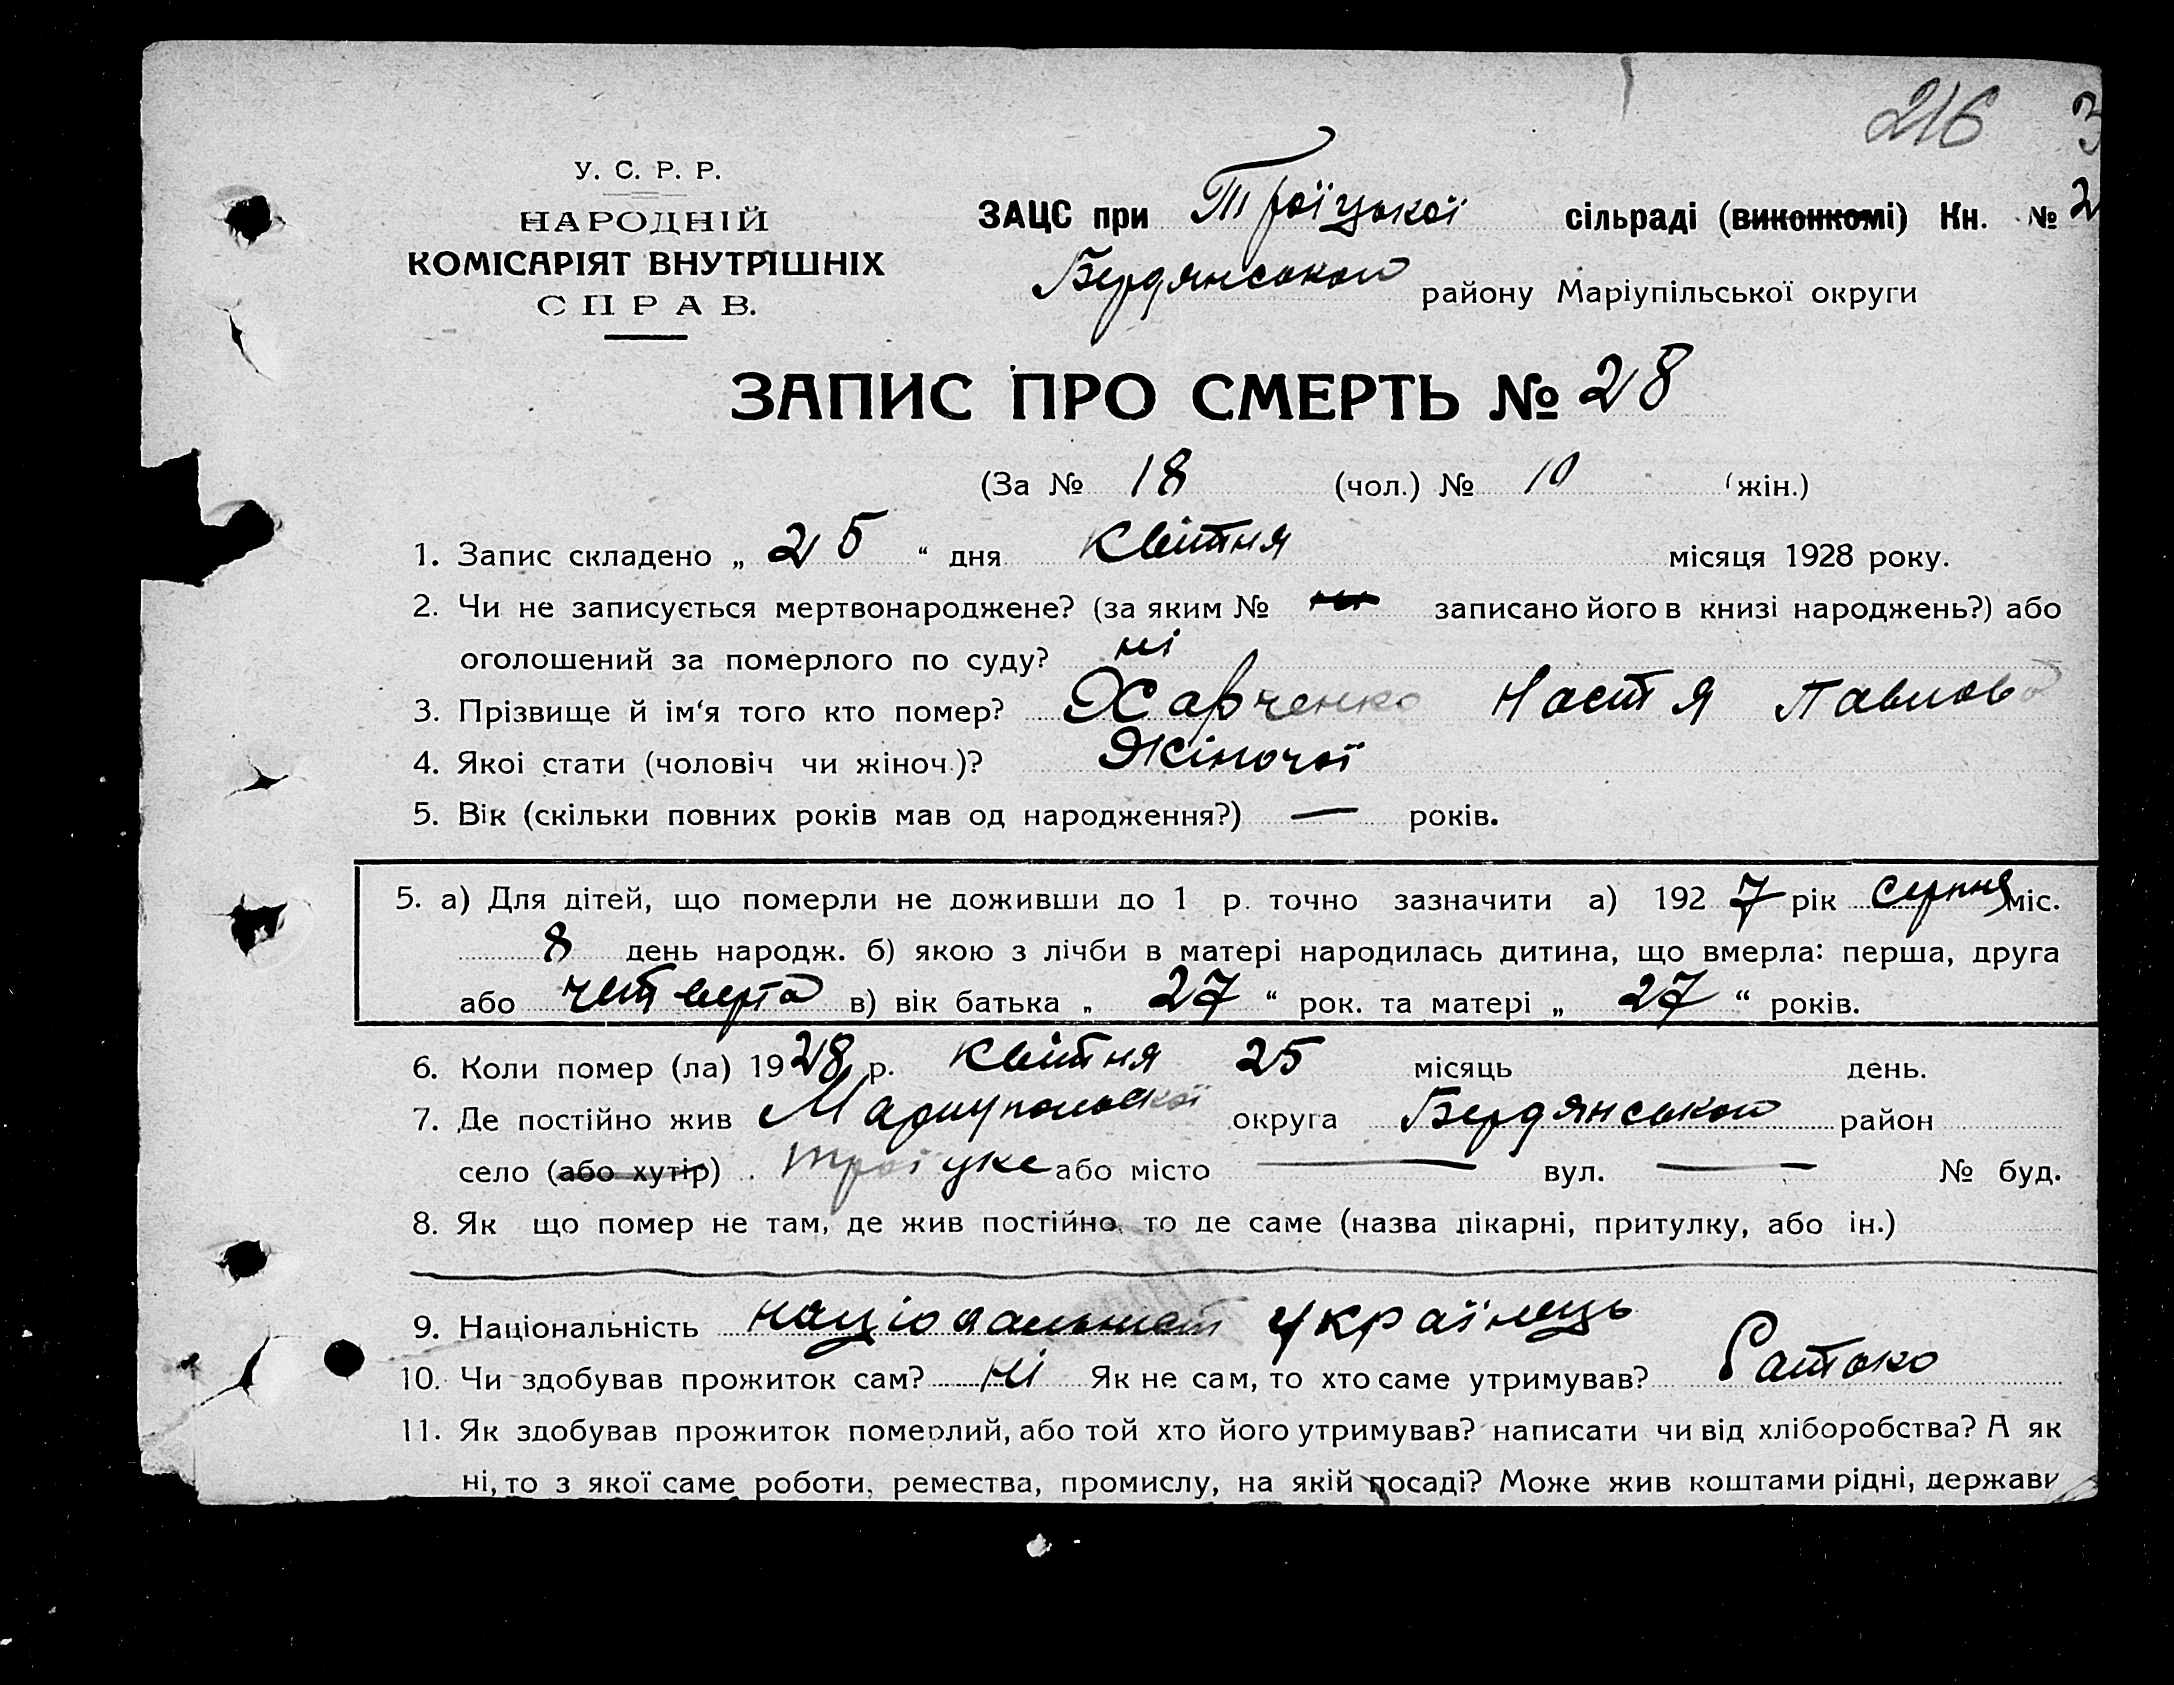 216 3
У. С. Р. Р.
НАРОДНІЙ
КОМІСАРІЯТ ВНУТРІШНІХ
СПРАВ.
ЗАЦС при Троїцької сільраді (виконкомі) Кн. № 2
Бердянського району Маріупільської округи
ЗАПИС ПРО СМЕРТЬ № 28
(За № 18 (чол.) № 10 (жін.)
1. Запис складено „ 25 “ дня Квітня місяця 1928 року.
2. Чи не записується мертвонароджене? (за яким № записано його в книзі народжень?) або
оголошений за померлого по суду? ні
3. Прізвище й ім'я того кто помер? Харченко Настя Павлова
4. Якоі стати (чоловіч чи жіноч.)? Жіночої
5. Вік (скільки повних років мав од народження?) — років.
5. а) Для дітей, що померли не доживши до 1 р. точно зазначити а) 1927 рік серпня міс.
8 день народж. б) якою з лічби в матері народилась дитина, що вмерла: перша, друга
або четверта в) вік батька „ 27 “ рок. та матері „ 27 “ років.
6. Коли помер (ла) 1928 р. Квітня 25 місяць день.
7. Де постійно жив Мариупольської округа Бердянського район
село (або хутір) Троїцке або місто — вул. — № буд.
8. Як що помер не там, де жив постійно, то де саме (назва лікарні, притулку, або ін.)
9. Національність національност українець
10. Чи здобував прожиток сам? ні Як не сам, то хто саме утримував? Батько
11. Як здобував прожиток померлий, або той хто його утримував? написати чи від хліборобства? А як
ні, то з якої саме роботи, ремества, промислу, на якій посаді? Може жив коштами рідні, держави